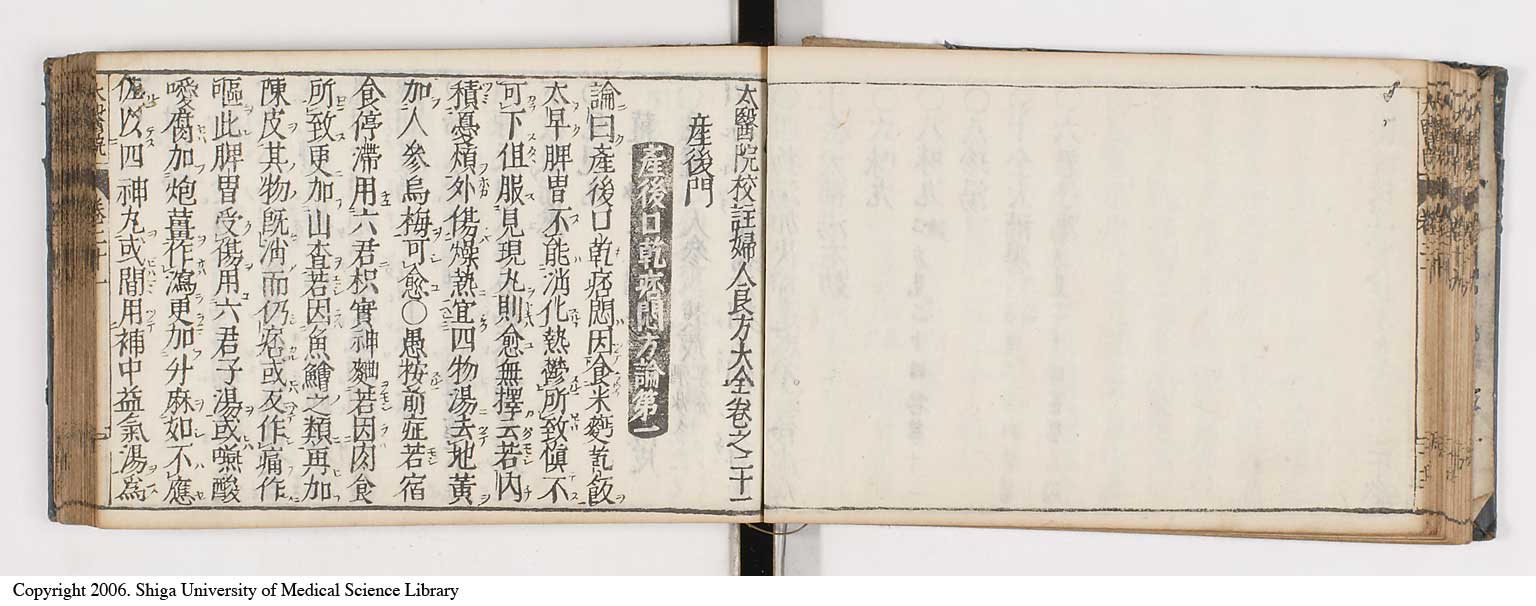 太醫院校註婦人良方大全卷之二十一
産後門
産後口乾痞悶方論第一
論曰産後口乾痞悶因食米麪乾飯
太早脾胃不能消化熱鬱所致愼不
可下但服見現丸則愈無擇云若内
積憂煩外傷燥熱宜四物湯去地黃
加人參烏梅可愈〇愚按前症若宿
食停滯用六君枳實神麯若因肉食
所致更加山査若因魚鱠之類再加
陳皮其物既消而仍痞或反作痛作
嘔此脾胃受傷用六君子湯或嚥酸
噯腐加炮薑作瀉更加升麻如不應
佐以四神丸或間用補中益氣湯爲
Copyright 2006. Shiga University of Medical Science Library